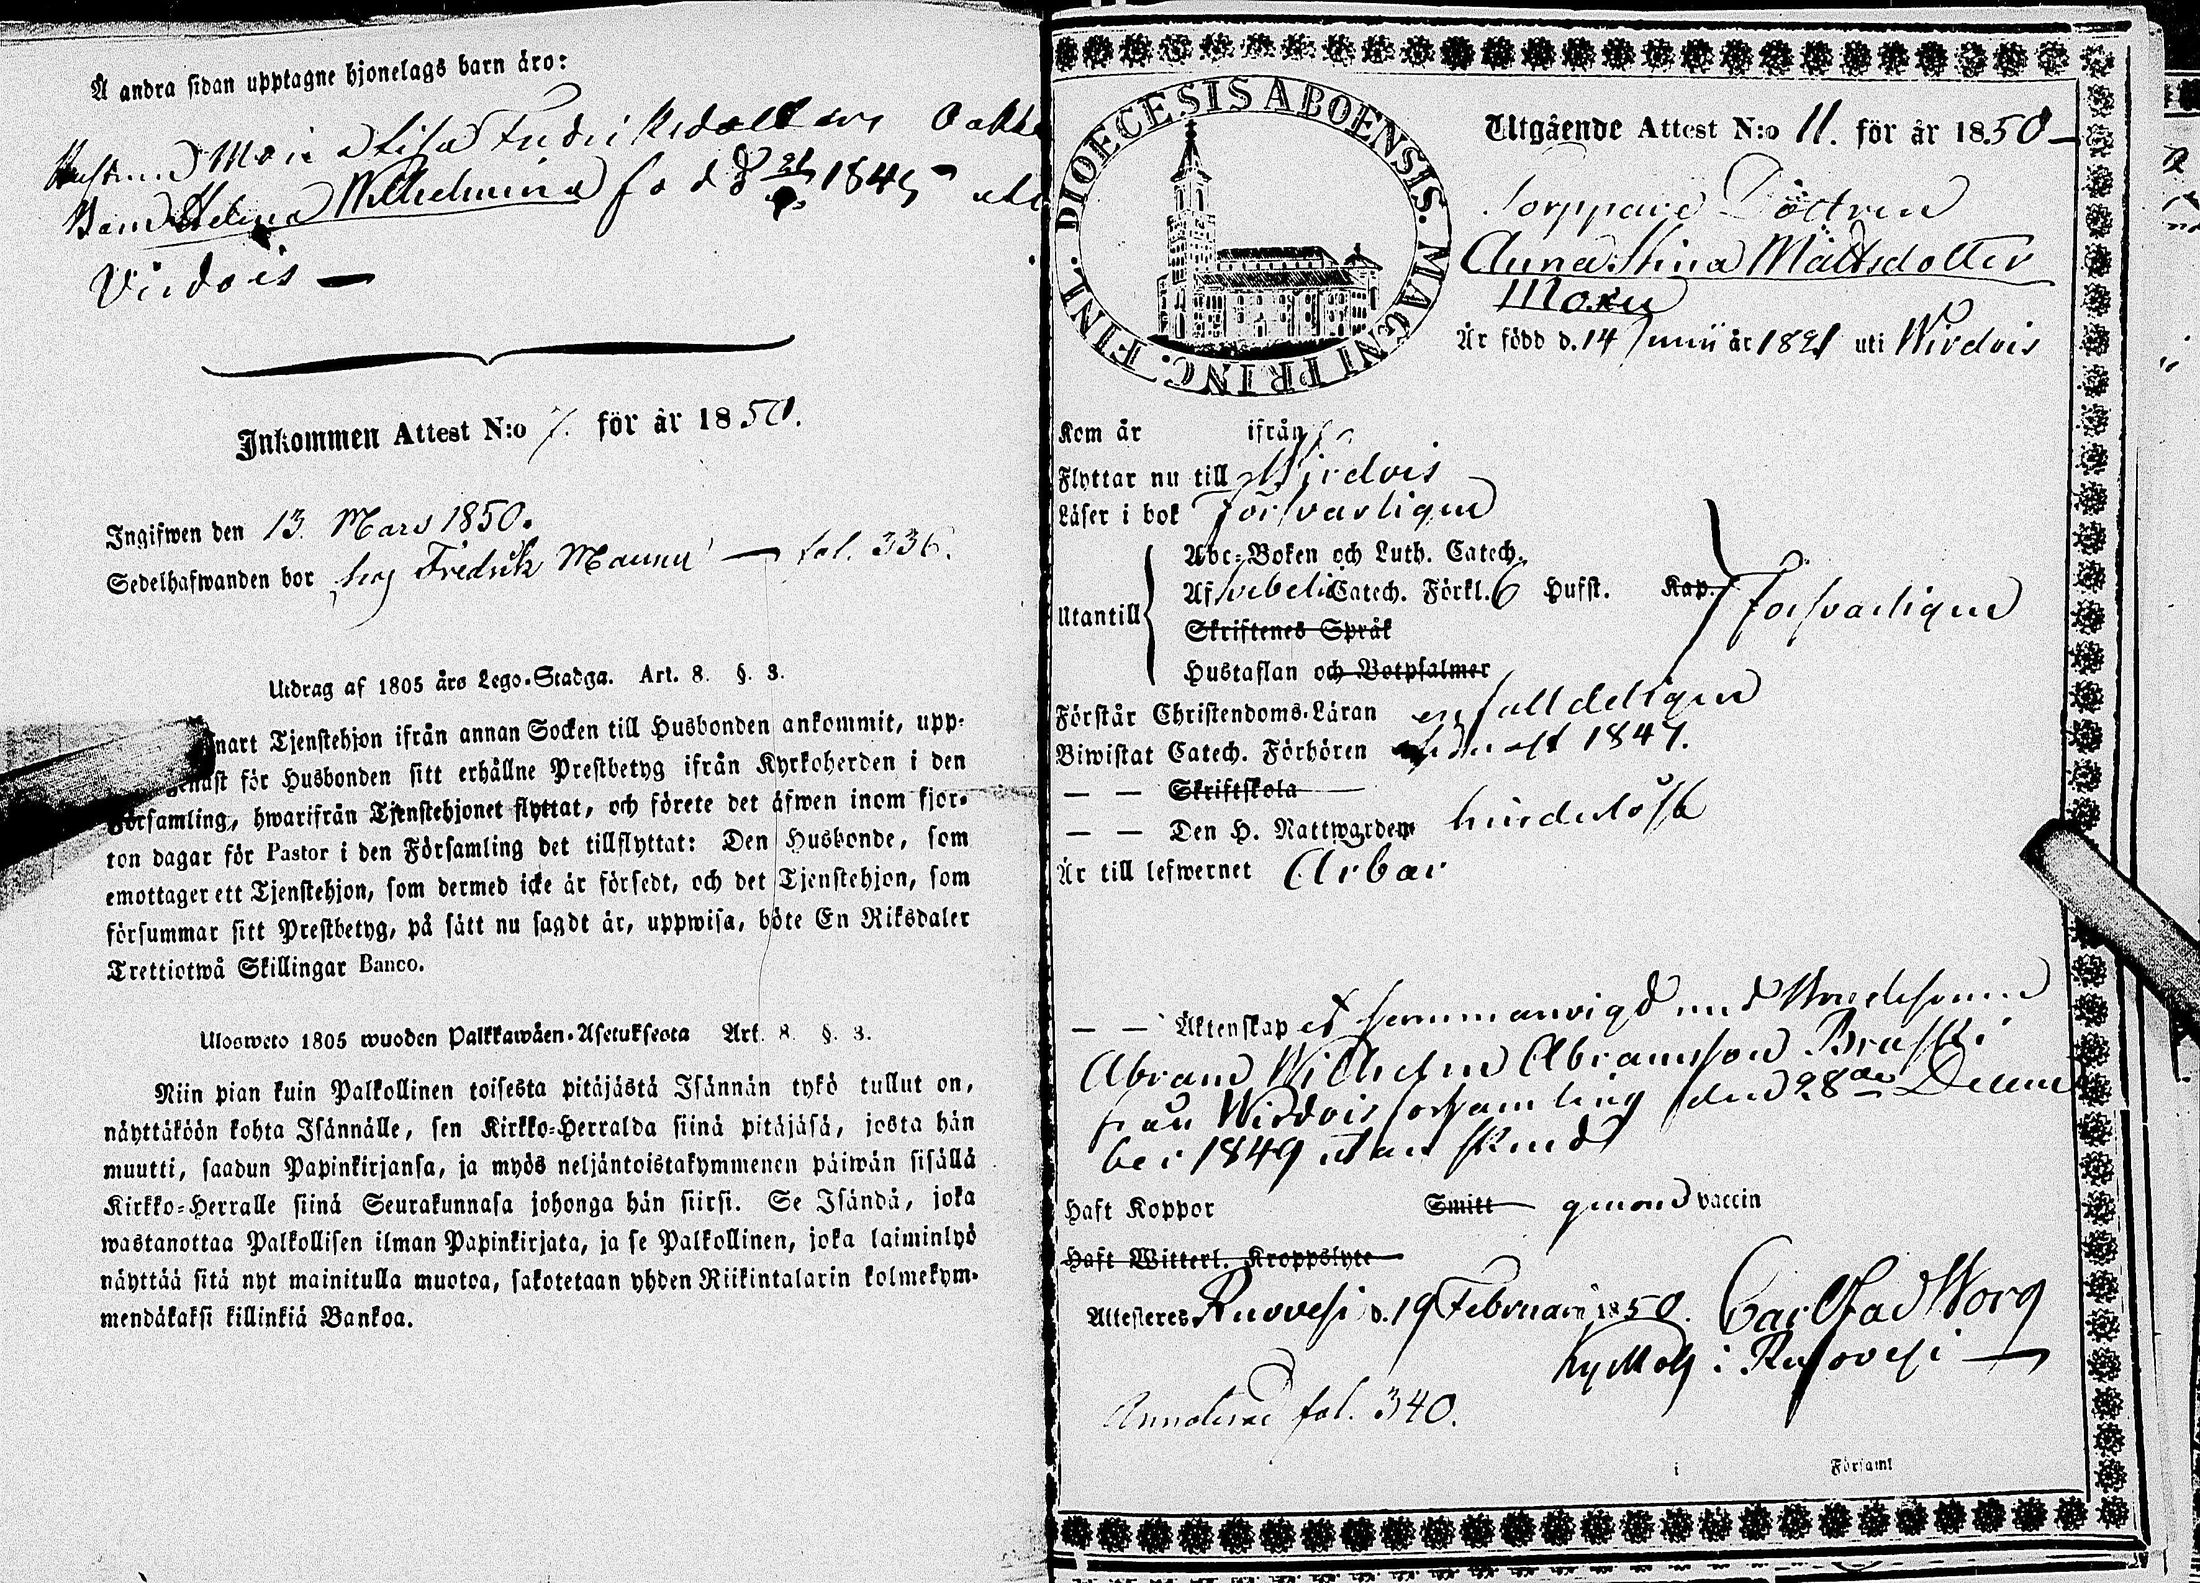 Å andra sidan upptagne hjonelags barn äro:
Hustrun Maria Lisa Fredriksdotter
Barn Helena Wilhelmina fö d 1845
Virdois —
Inkommen Attest N:o 7. för år 1850.
Ingifwen den 13. Mars 1850.
Sedelhafwanden bor hos Fredrik Maunu — fol. 336.
Utdrag af 1805 års Lego-Stadga. Art. 8. §. 3.
nart Tjenstehjon ifrån annan Socken till Husbonden ankommit, upp-
genast för Husbonden sitt erhållne Prestbetyg ifrån Kyrkoherden i den
Församling, hwarifrån Tjenstehjonet flyttat, och förete det äfwen inom fjor-
ton dagar för Pastor i den Församling det tillflyttat: Den Husbonde, som
emottager ett Tjenstehjon, som dermed icke är försedt, och det Tjenstehjon, som
försummar sitt Prestbetyg, på sätt nu sagdt är, uppwisa, böte En Riksdaler
Trettiotwå Skillingar Banco.
Ulosweto 1805 wuoden Palkkawäen-Asetuksesta Art. 8. §. 3.
Niin pian kuin Palkollinen toisesta pitäjästä Isännän tykö tullut on,
näyttäköön kohta Isännälle, sen Kirkko-Herralda siinä pitäjäsä, josta hän
muutti, saadun Papinkirjansa, ja myös neljäntoistakymmenen päiwän sisällä
Kirkko-Herralle siinä Seurakunnasa johonga hän siirsi. Se Isändä, joka
wastanottaa Palkollisen ilman Papinkirjata, ja se Palkollinen, joka laiminlyö
näyttää sitä nyt mainitulla muotoa, sakotetaan yhden Riikintalarin kolmekym-
mendäkaksi killinkiä Bankoa.
DIOECESIS ABOENSIS. MAGNI PRINC. FINL.
Utgående Attest N:o 11. för år 1850
Torppare Dottren
Anna Stina Mattsdotter
Är född d. 14 Junii år 1821 uti Wirdois
Kom år ifrån
Flyttar nu till Wirdois
Läser i bok försvarligen
Utantill
Abc-Boken och Luth. Catech.
Af Svebelii Catech. Förkl. 6 Hufst. Kap. försvarligen
Skriftenes Språk
Hustaflan och Botpsalmer
Förstår Christendoms-Läran enfalldeligen
Biwistat Catech. Förhören 1849.
— — Skriftskola
— — Den H. Nattwarden hinderlöst
Är till lefwernet Ärbar
— — Äktenskap är sammanvigd med
Abram Wilhelm Abramsson
från Wirdois församling den 28de Decem
ber 1849 utan
Haft Koppor Smitt genom vaccin
Haft Witterl. Kroppslyte
Attesteras Ruovesi d. 19 Februarii 1850. Carl Gust Worg
i Ruovesi
Annoterad fol. 340.
i Församl